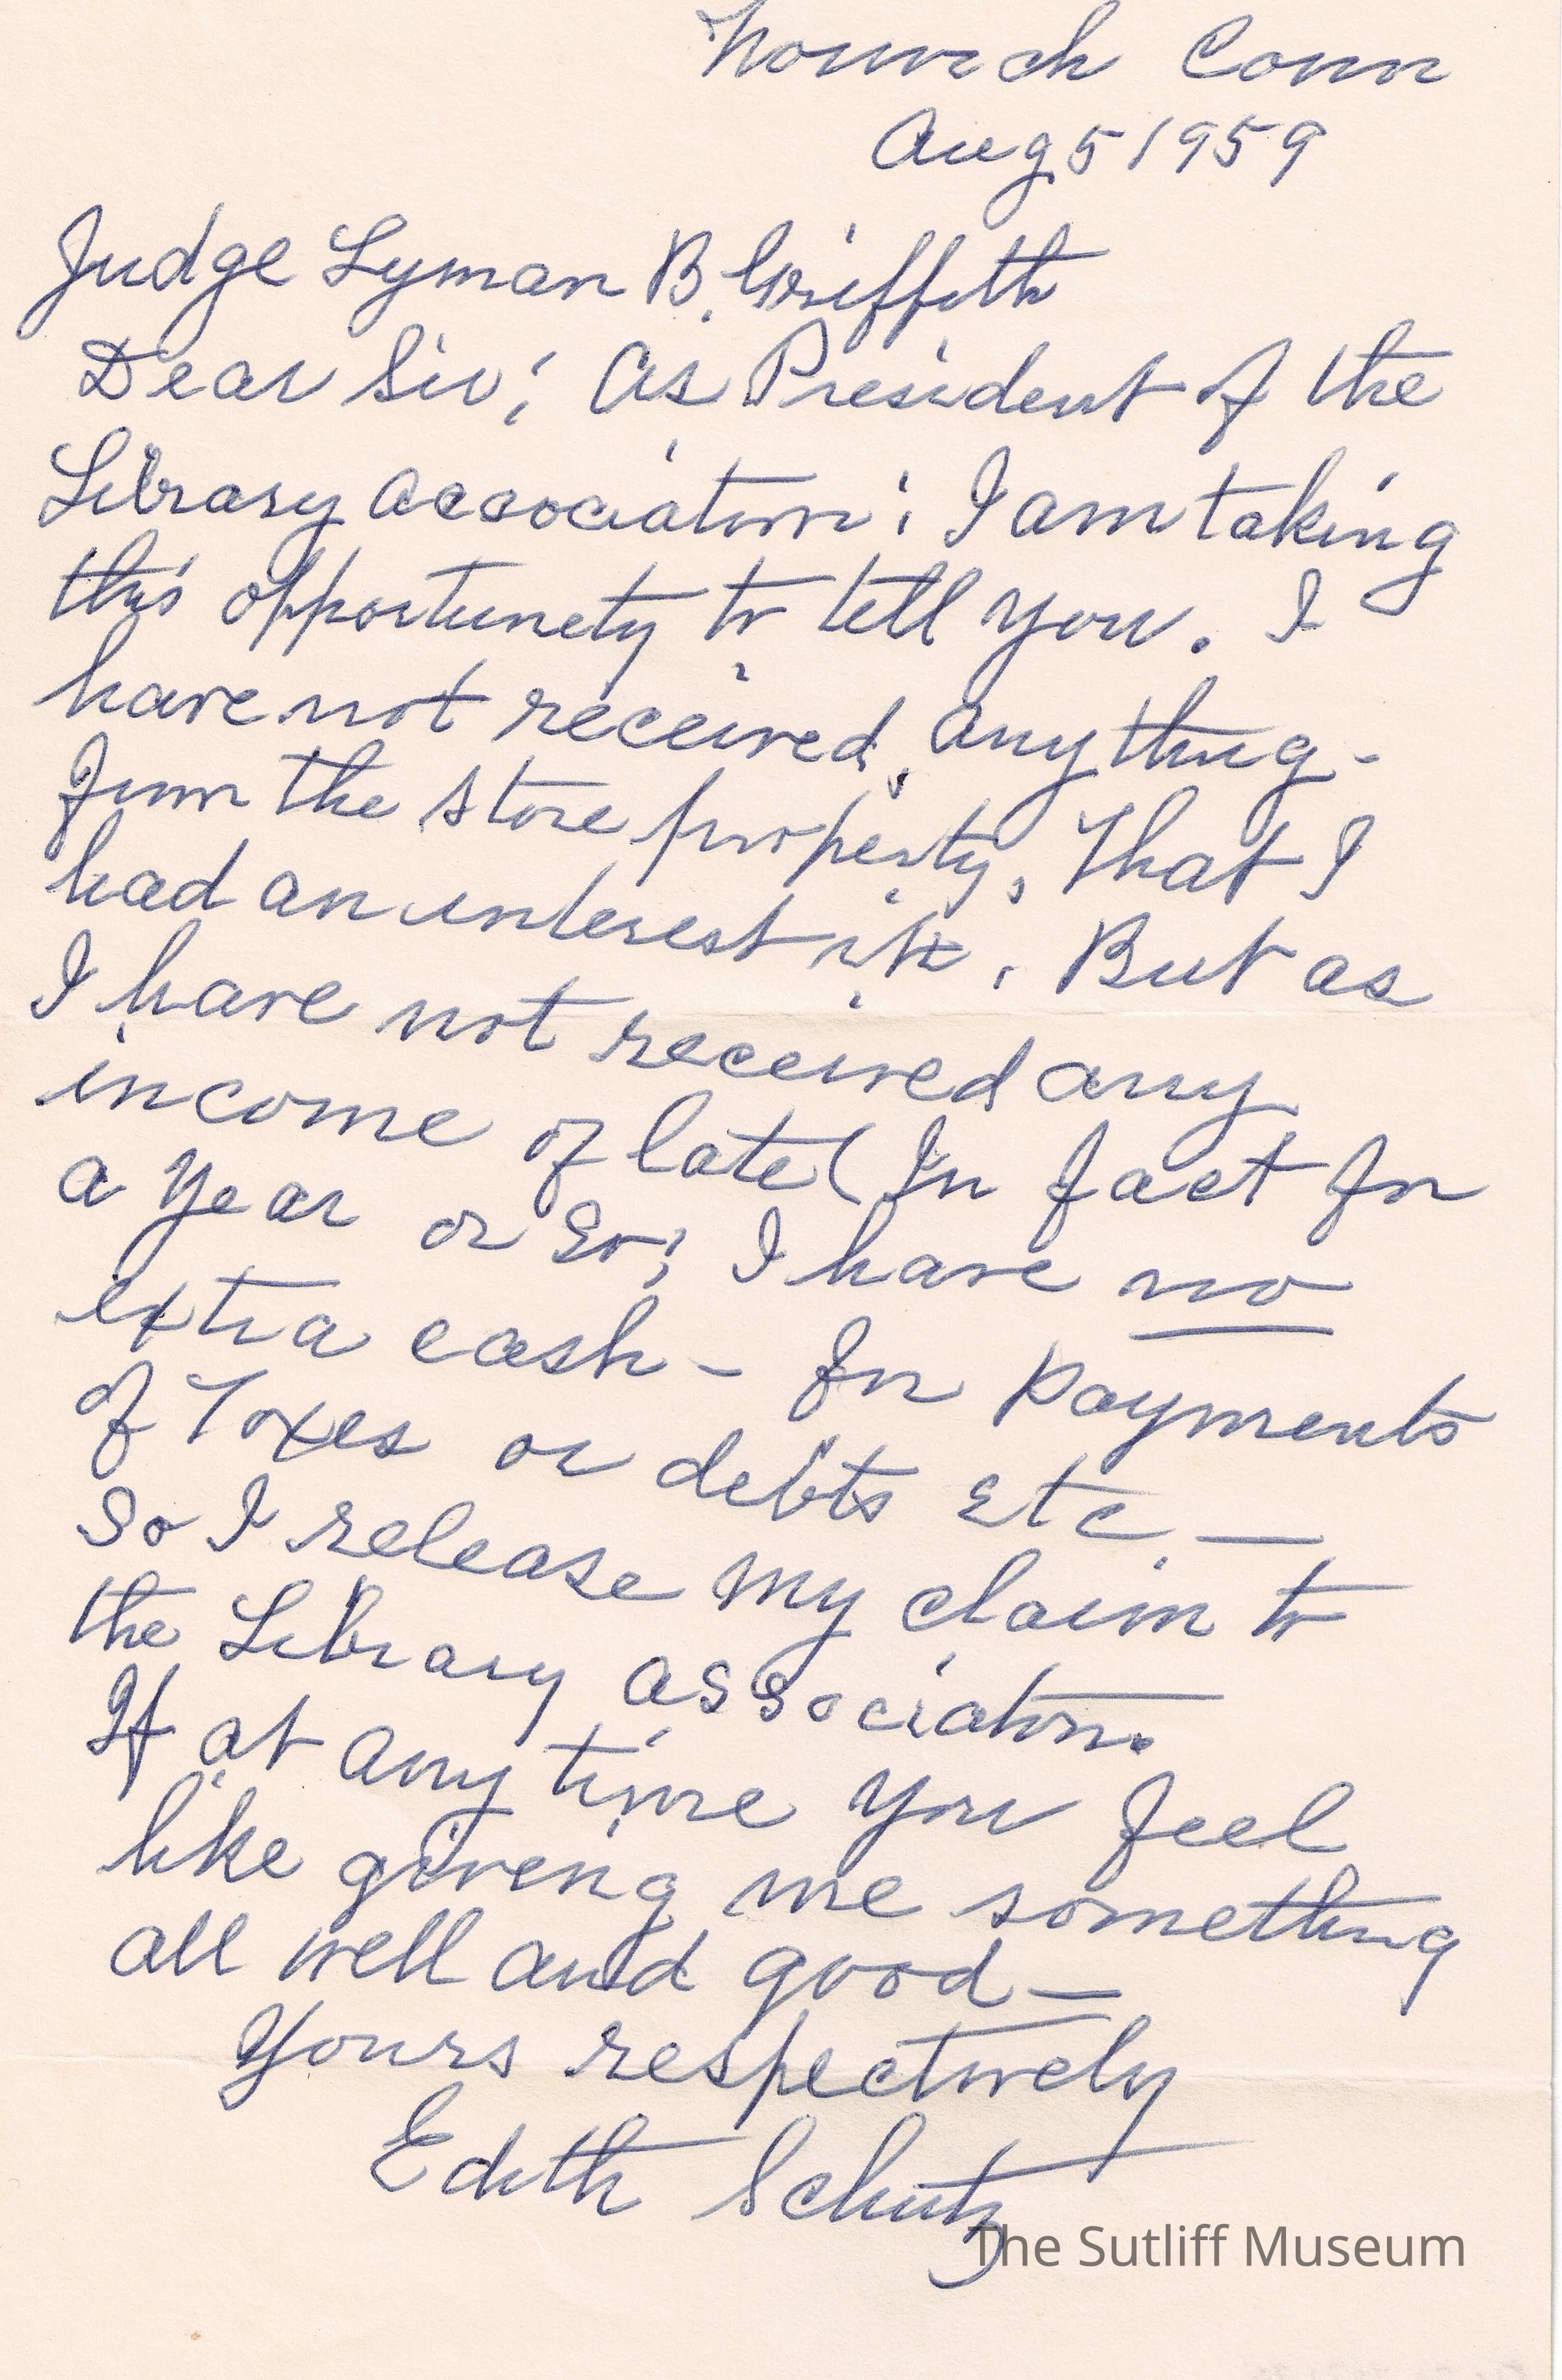 Norwich Conn
Aug 5 1959
Judge Lyman B. Griffith
Dear Sir; As President of the
Library Association; I am taking
this opportunety to tell you. I
have not received, anything -
from the store property, That I
had an interest in. But as
I have not received any
income of late (In fact for
a Year or So; I have no
extra cash - for payments
of Taxes or debts Etc. —
So I release my claim to
the Library Association.
If at any time you feel
like giveng me something
all well and good —
Yours respectively
Edith Schutz
The Sutliff Museum